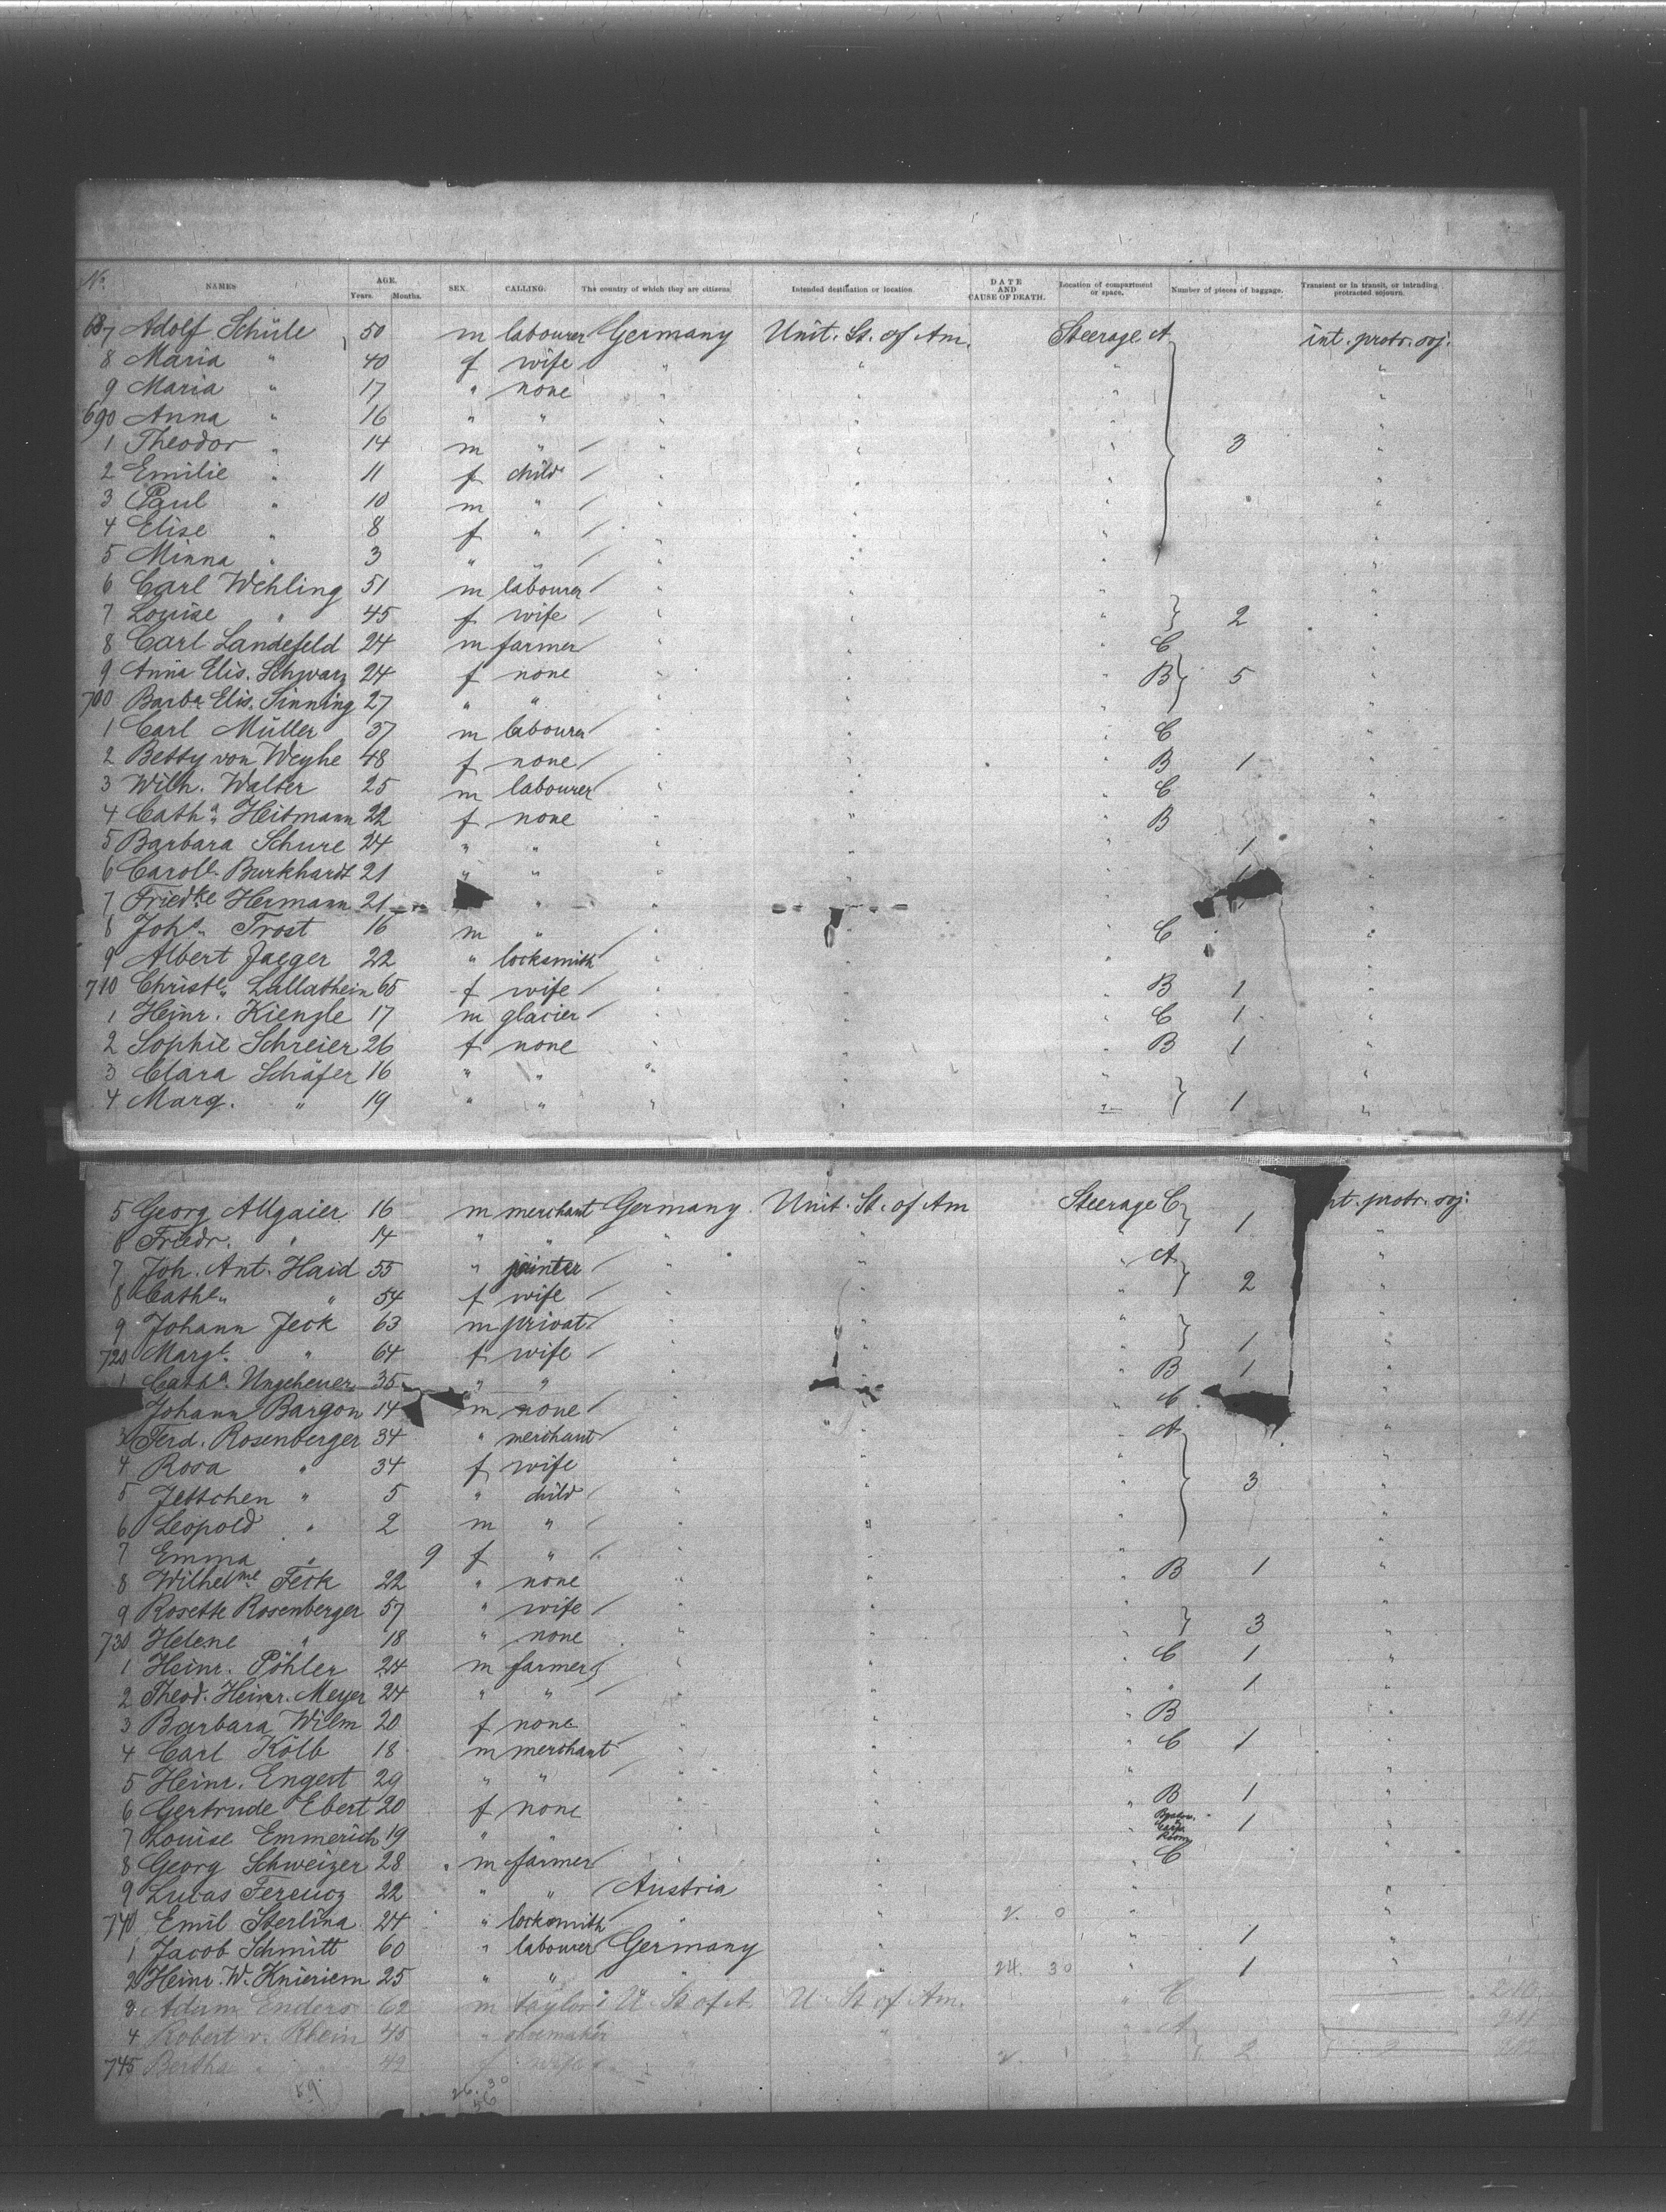 No. NAMES AGE. Years. Months. SEX. CALLING. The country of which they are citizens Intended destination or location DATE AND CAUSE OF DEATH. Location of compartment or space. Number of pieces of baggage. Transient or in transit, or intending protracted sojourn.
687 Adolf Schüle 50 m labourer Germany Unit. St. of Am. Steerage A int. protr. soj.
8 Maria " 40 f wife " " " "
9 Maria " 17 " none " " " "
690 Anna " 16 " " " " " "
1 Theodor " 14 m " " " " 3 "
2 Emilie " 11 f child " " " "
3 Paul " 10 m " " " " "
4 Elise " 8 f " " " " "
5 Minna " 3 " " " " " "
6 Carl Wehling 51 m labourer " " " "
7 Louise " 45 f wife " " " 2 "
8 Carl Landefeld 24 m farmer " " " C "
9 Anna Elis. Schwarz 24 f none " " " B 5 "
700 Barba Elis. Sinning 27 " " " " " "
1 Carl Müller 37 m labourer " " " C "
2 Betty von Weyhe 48 f none " " " B 1 "
3 Wilh. Walter 25 m labourer " " " C "
4 Catha Heitmann 22 f none " " " B "
5 Barbara Schure 24 " " " " " 1 "
6 Caroll. Burkhardt 21 " " " " " 1 "
7 Friedke Hermann 21 " " " " "
8 Joh. Trost 16 m " " " " C "
9 Albert Jaeger 22 " locksmith " " " "
710 Christe. Lallathein 65 f wife " " " B 1 "
1 Heinr. Kienzle 17 m glacier " " " C 1 "
2 Sophie Schreier 26 f none " " " B 1 "
3 Clara Schäfer 16 " " " " " "
4 Marg. " 19 " " " " " 1 "
5 Georg Allgaier 16 m merchant Germany Unit. St. of Am Steerage C 1 int. protr. soj.
6 Friedr. " 14 " " " " " "
7 Joh. Ant. Haid 55 " painter " " " A "
8 Cathe. " 54 f wife " " " 2 "
9 Johann Jeck 63 m privat " " " "
720 Margt. " 64 f wife " " " 1 "
1 Catha. Ungeheuer 35 " " " " " B 1 "
Johann Bargon 14 m none " " " C "
3 Ferd. Rosenberger 34 " merchant " " " A "
4 Rosa " 34 f wife " " " "
5 Jettchen " 5 " child " " " 3 "
6 Leopold " 2 m " " " " "
7 Emma " 9 f " " " " "
8 Wilhelme Feck 22 " none " " " B 1 "
9 Rosette Rosenberger 57 " wife " " " "
730 Helene " 18 " none " " " 3 "
1 Heinr. Pöhler 24 m farmer " " " C 1 "
2 Theod. Heinr. Meyer 24 " " " " " " 1 "
3 Barbara Wilm 20 f none " " " B "
4 Carl Kölb 18 m merchant " " " C 1 "
5 Heinr. Engert 29 " " " " " "
6 Gertrude Ebert 20 f none " " " B 1 "
7 Louise Emmerich 19 " " " " " Room 1 "
8 Georg Schweizer 28 m farmer " " " C "
9 Lucas Ferencz 22 " " Austria " " "
740 Emil Sterlina 24 " locksmith " " "
1 Jacob Schmitt 60 " labourer Germany " " 1 "
2 Heinr. W. Knieriem 25 " " " " 24. 30 " 1 "
3 Adam Enders 62 m taylor U. St of A. U. St of Am. " C 210
4 Robert v. Rhein 45 " shoemaker " " " A 211
745 Bertha " 42 f wife " " " 2 212
59 26. 30
56